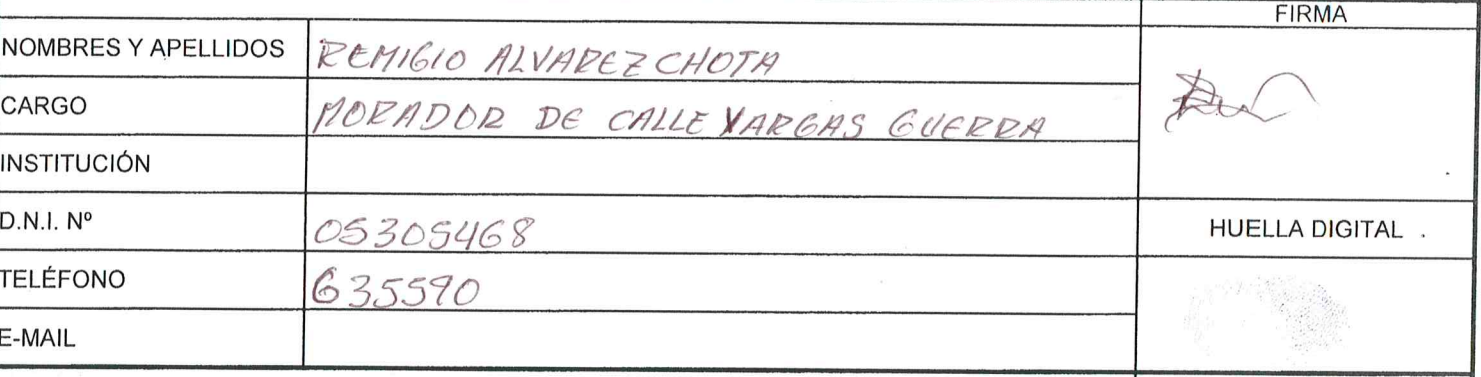 FIRMA
NOMBRES Y APELLIDOS REMIGIO ALVAREZ CHOTA
CARGO MORADOR DE CALLE VARGAS GUERRA
INSTITUCIÓN
D.N.I. Nº 05305468
HUELLA DIGITAL
TELÉFONO 635590
E-MAIL